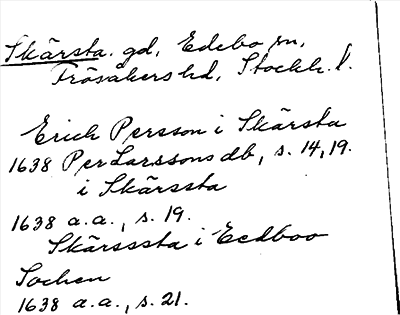 Skärsta. gd, Edebo sn,
Frösåkers hd, Stockh. l.
Erich Persson i Skärsta
1638 Per Larssons db, s. 14, 19.
i Skärssta
1638 a.a., s. 19.
Skärsssta i Eedboo
Sochen
1638 a.a., s. 21.